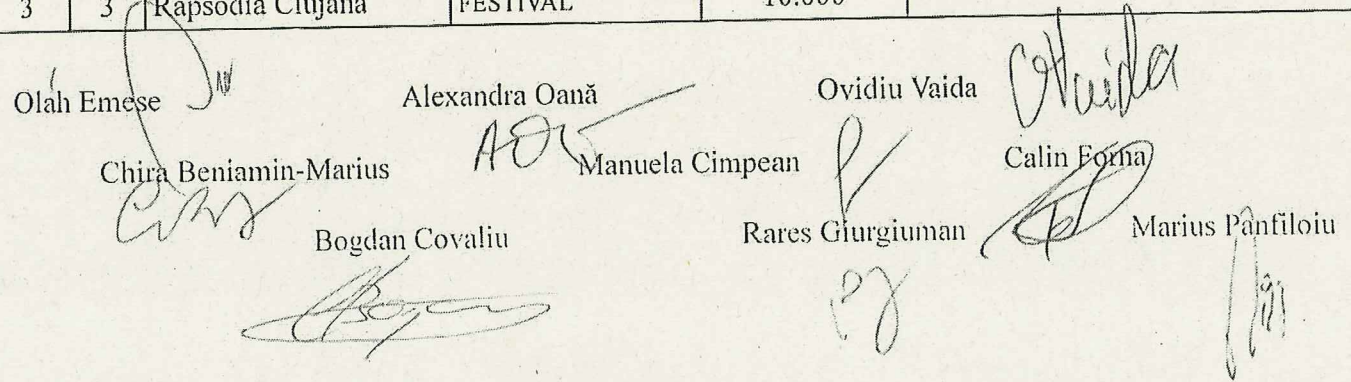 3 3 Rapsodia Clujana FESTIVAL 10.000
Oláh Emese Alexandra Oană Ovidiu Vaida
OVaida
Chira Beniamin-Marius Manuela Cimpean Calin Forna
Bogdan Covaliu Rares Giurgiuman Marius Pânfiloiu